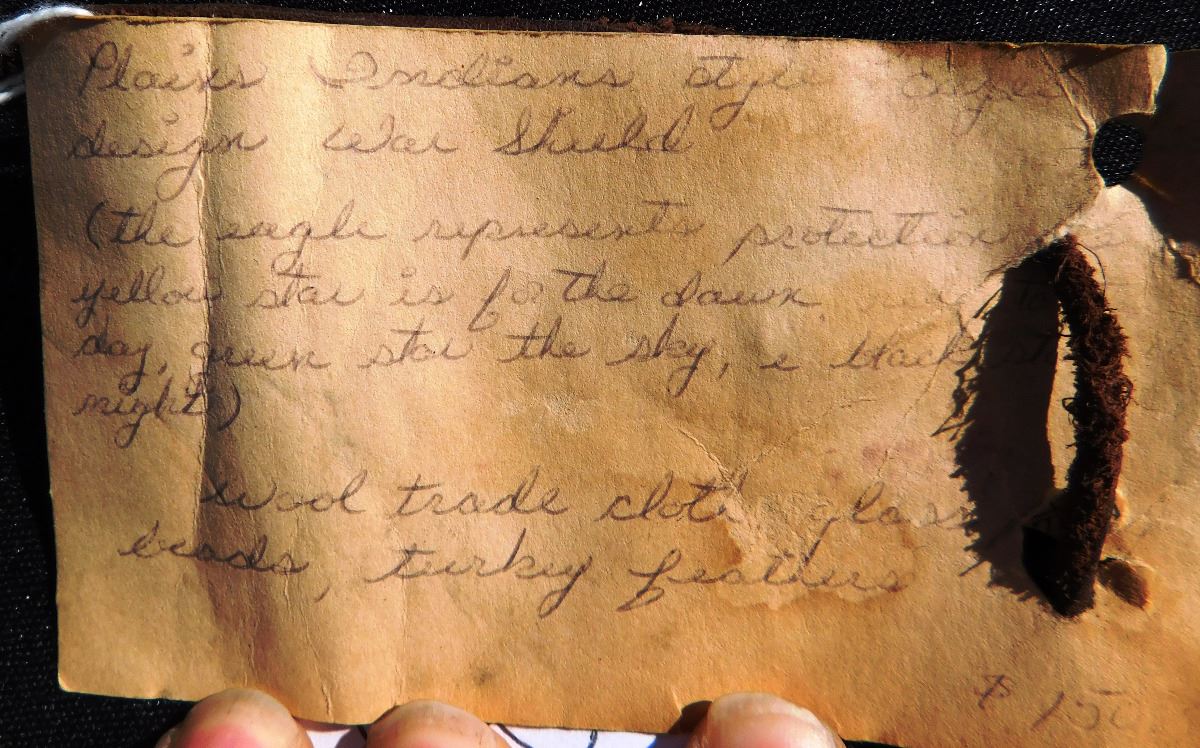 Plains Indians style Eagle
design War Shield
(the eagle represents protection
yellow star is for the dawn, red
day, green star the sky, & black st
night)
Wool trade cloth glass
beads, turkey feathers
$150